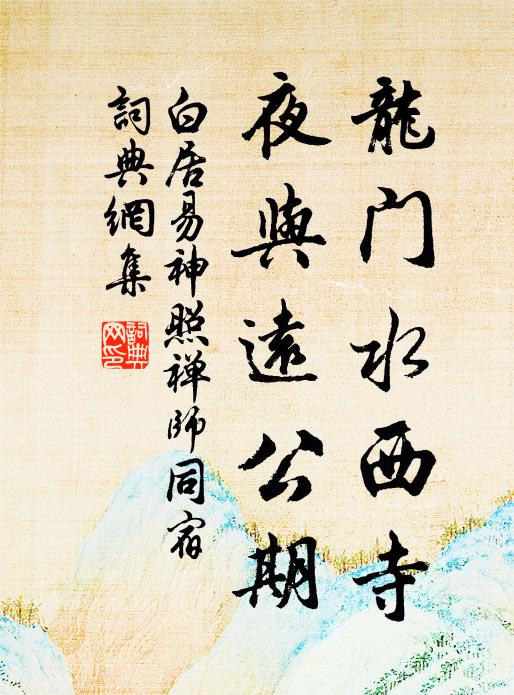 龍门水西寺
夜與遠公期
白居易神照禅师同宿
詞典網集
詞典
网印